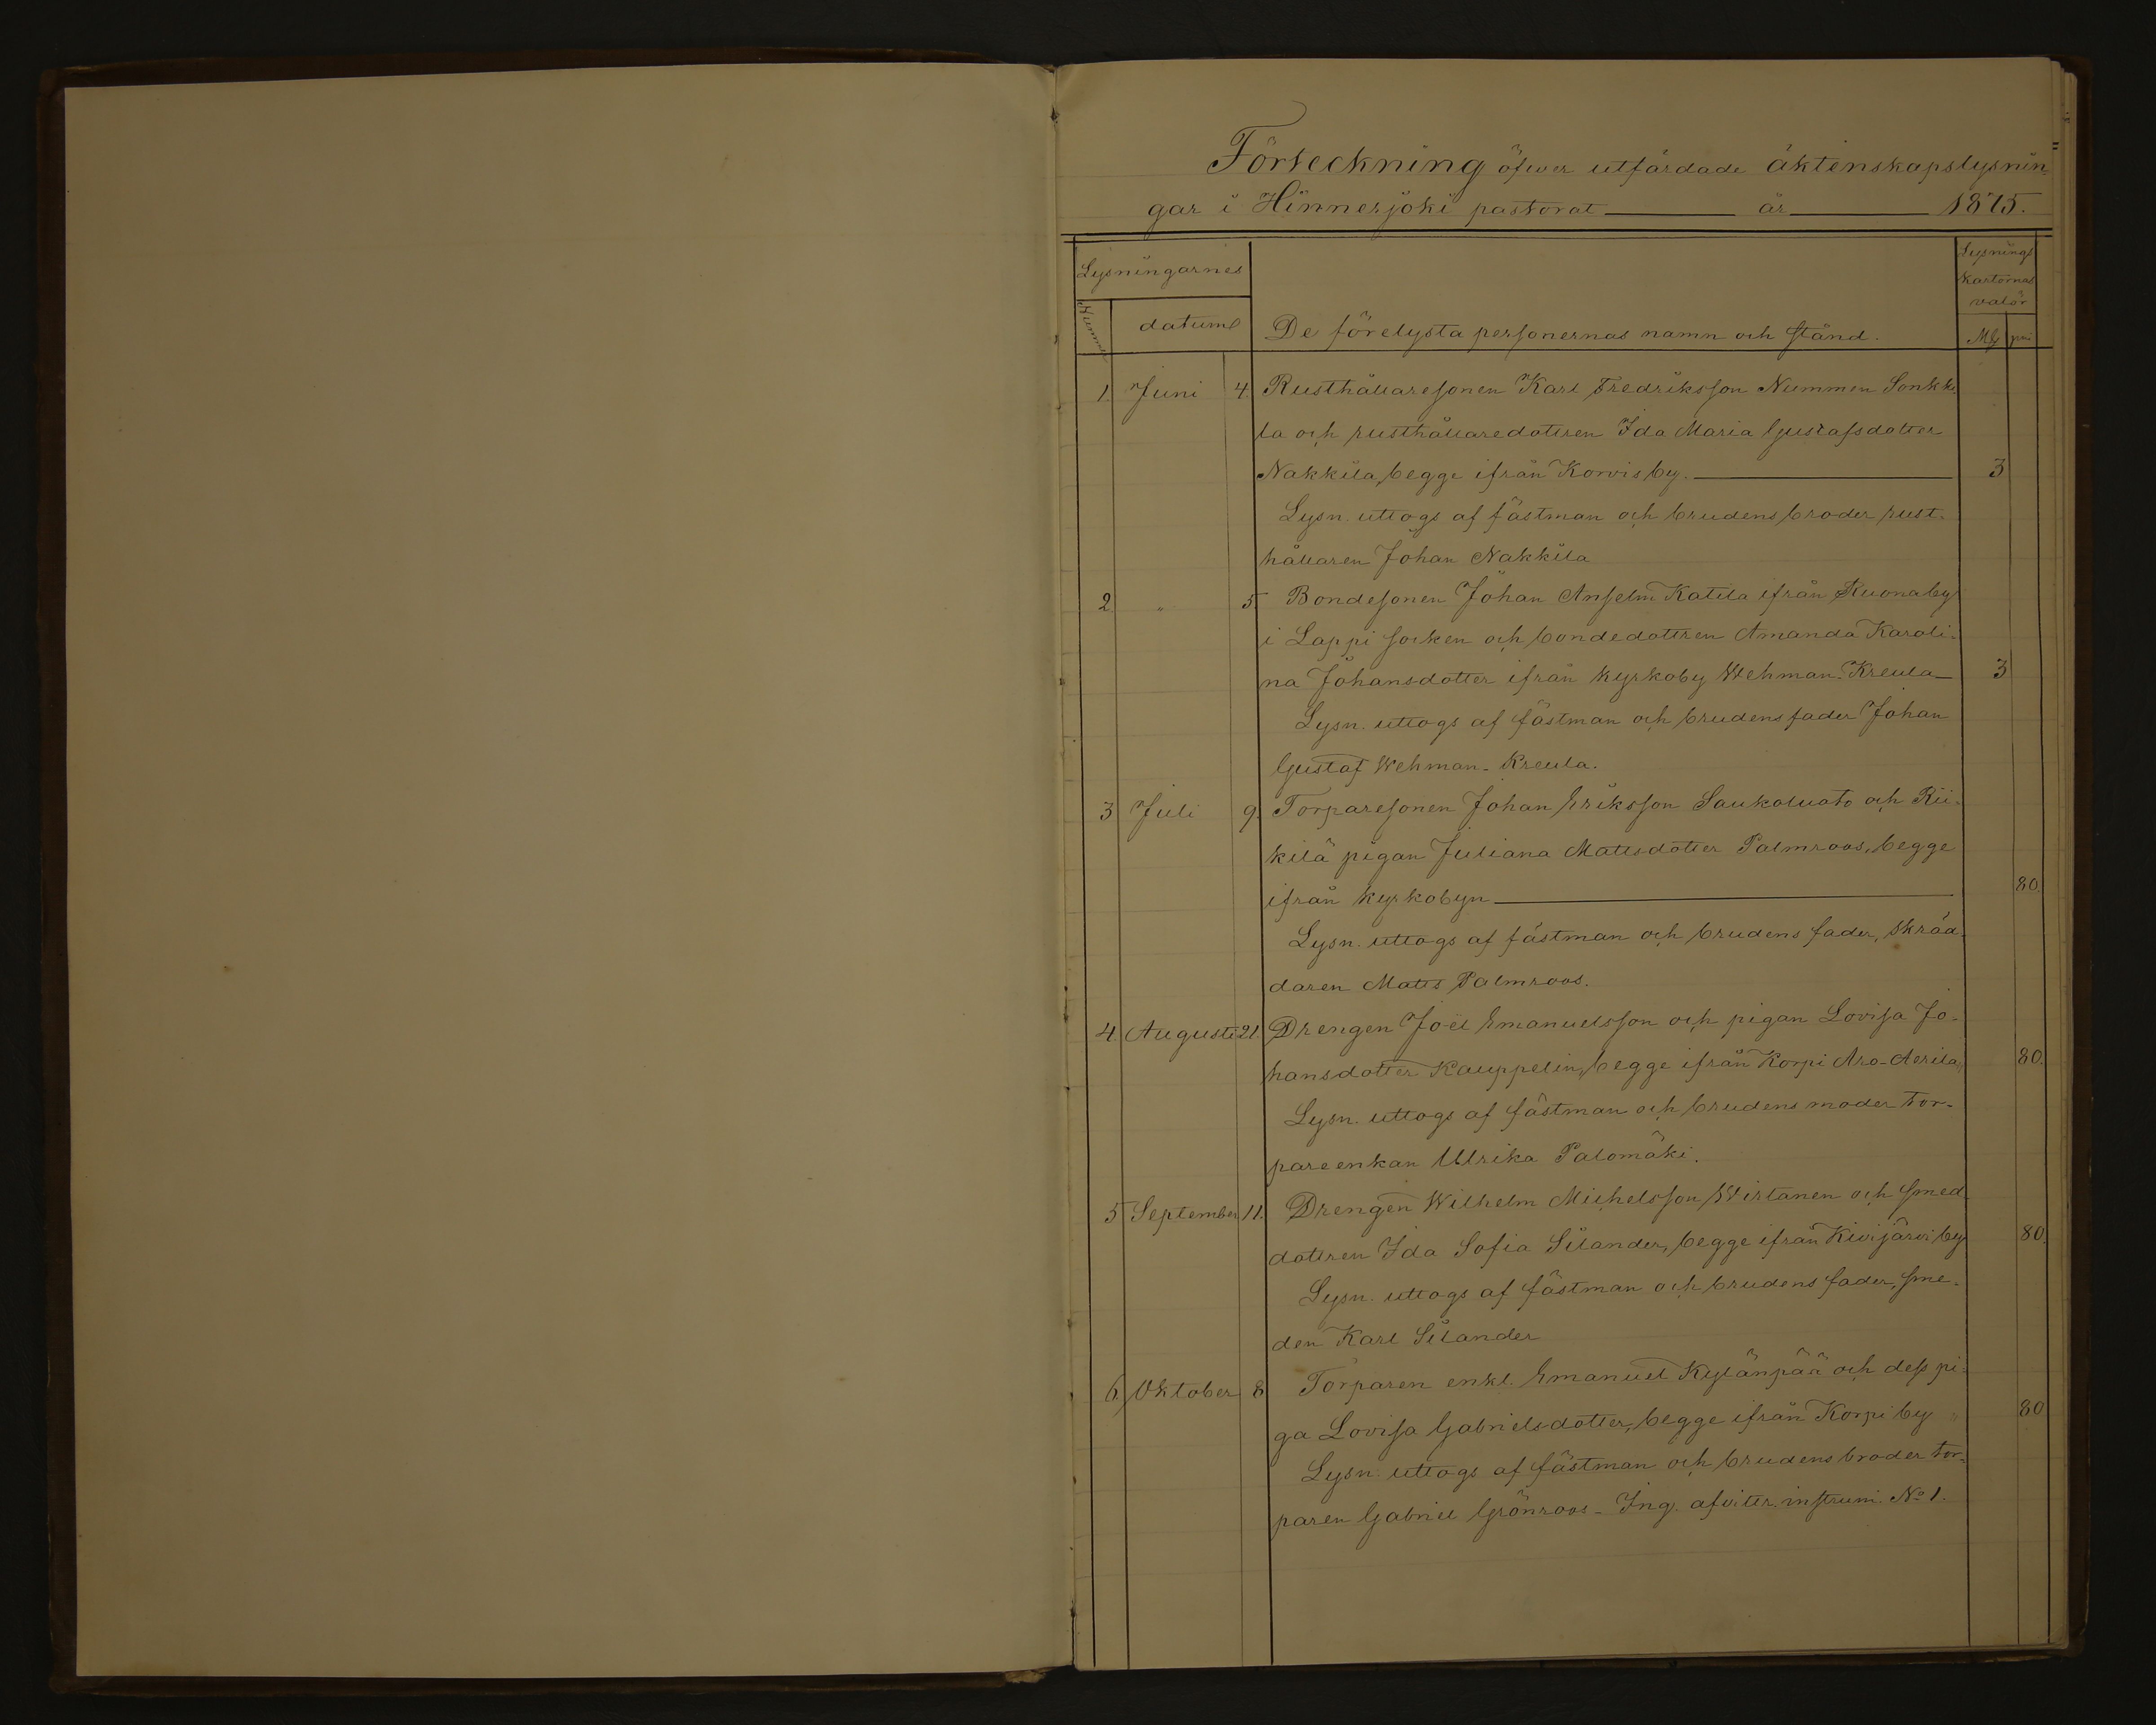 Förteckning öfwer utfärdade äktenskapslysnin-
gar i Hinnerjoki pastorat år 1875.
Lysningarnes
Lysnings
kartornas
valör
Nummer datum De förelysta personernas namn och stånd. Mk pni
1. Juni 4. Rusthållaresonen Karl Fredriksson Nummen Sonkki-
la och rusthållaredottren Ida Maria Gustafsdotter
Nakkila, begge ifrån Korvis by. 3
Lysn. uttogs af fästman och brudens broder rust-
hållaren Johan Nakkila
2 " 5. Bondesonen Johan Anselm Katila ifrån Ruona by
i Lappi socken och bondedottren Amanda Karoli-
na Johansdotter ifrån kyrkoby Wehman-Kreula 3
Lysn. uttogs af fästman och brudens fader Johan
Gustaf Wehman-Kreula.
3 Juli 9. Torparesonen Johan Eriksson Saukoluoto och Rii-
kilä pigan Juliana Mattsdotter Palmroos, begge
ifrån kyrkobyn 80.
Lysn. uttogs af fästman och brudens fader, skräd-
daren Matts Palmroos.
4. Augusti 21. Drengen Joël Emanuelsson och pigan Lovisa Jo-
hansdotter Kauppelin, begge ifrån Korpi Aro-Aerila 80.
Lysn. uttogs af fästman och brudens moder tor-
pareenkan Ulrika Palomäki.
5 September 11. Drengen Wilhelm Michelsson Wirtanen och smed-
dottren Ida Sofia Silander, begge ifrån Kivijärvi by 80.
Lysn. uttogs af fästman och brudens fader, sme-
den Karl Silander
6. Oktober 8 Torparen enkl. Emanuel Kylänpää och dess pi-
ga Lovisa Gabrielsdotter, begge ifrån Korpi by " 80
Lysn. uttogs af fästman och brudens broder tor-
paren Gabriel Grönroos - Ing. afviter. instrum. No 1.